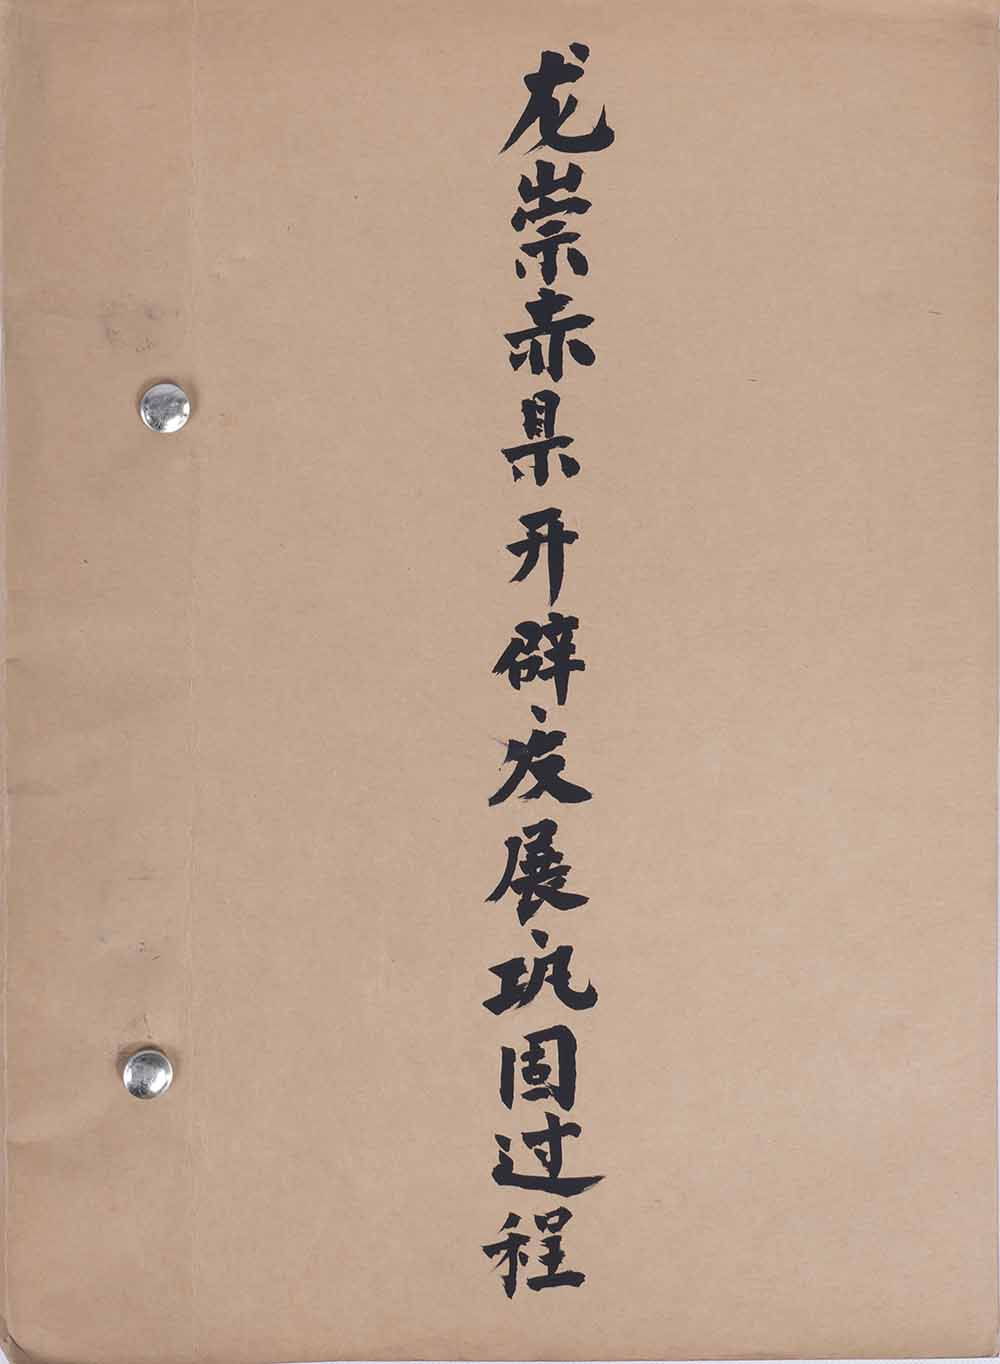 龙崇赤県开辟发展巩固过程